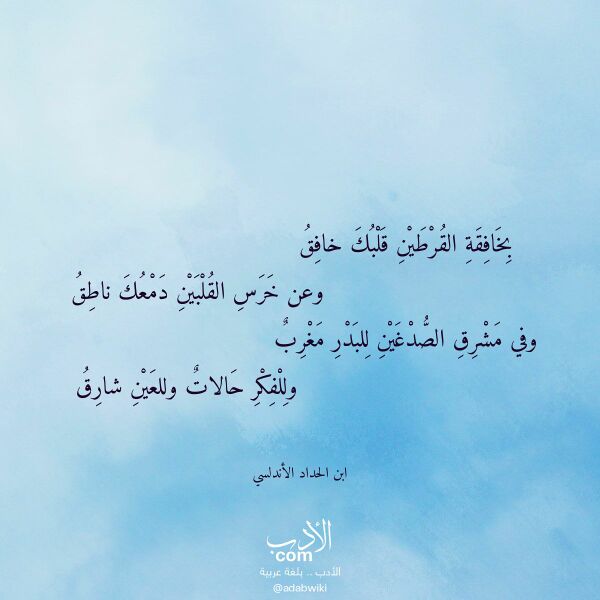 بِخَافِقَةِ القُرْطَيْنِ قَلْبُكَ خافِقُ
وعن خَرَسِ القُلْبَيْنِ دَمْعُكَ ناطِقُ
وفي مَشْرِقِ الصُّدْغَيْنِ لِلبَدْرِ مَغْرِبٌ
ولِلْفِكْرِ حَالاتٌ وللعَيْنِ شارِقُ
ابن الحداد الأندلسي
الأدب
com
الأدب .. بلغة عربية
@adabwiki